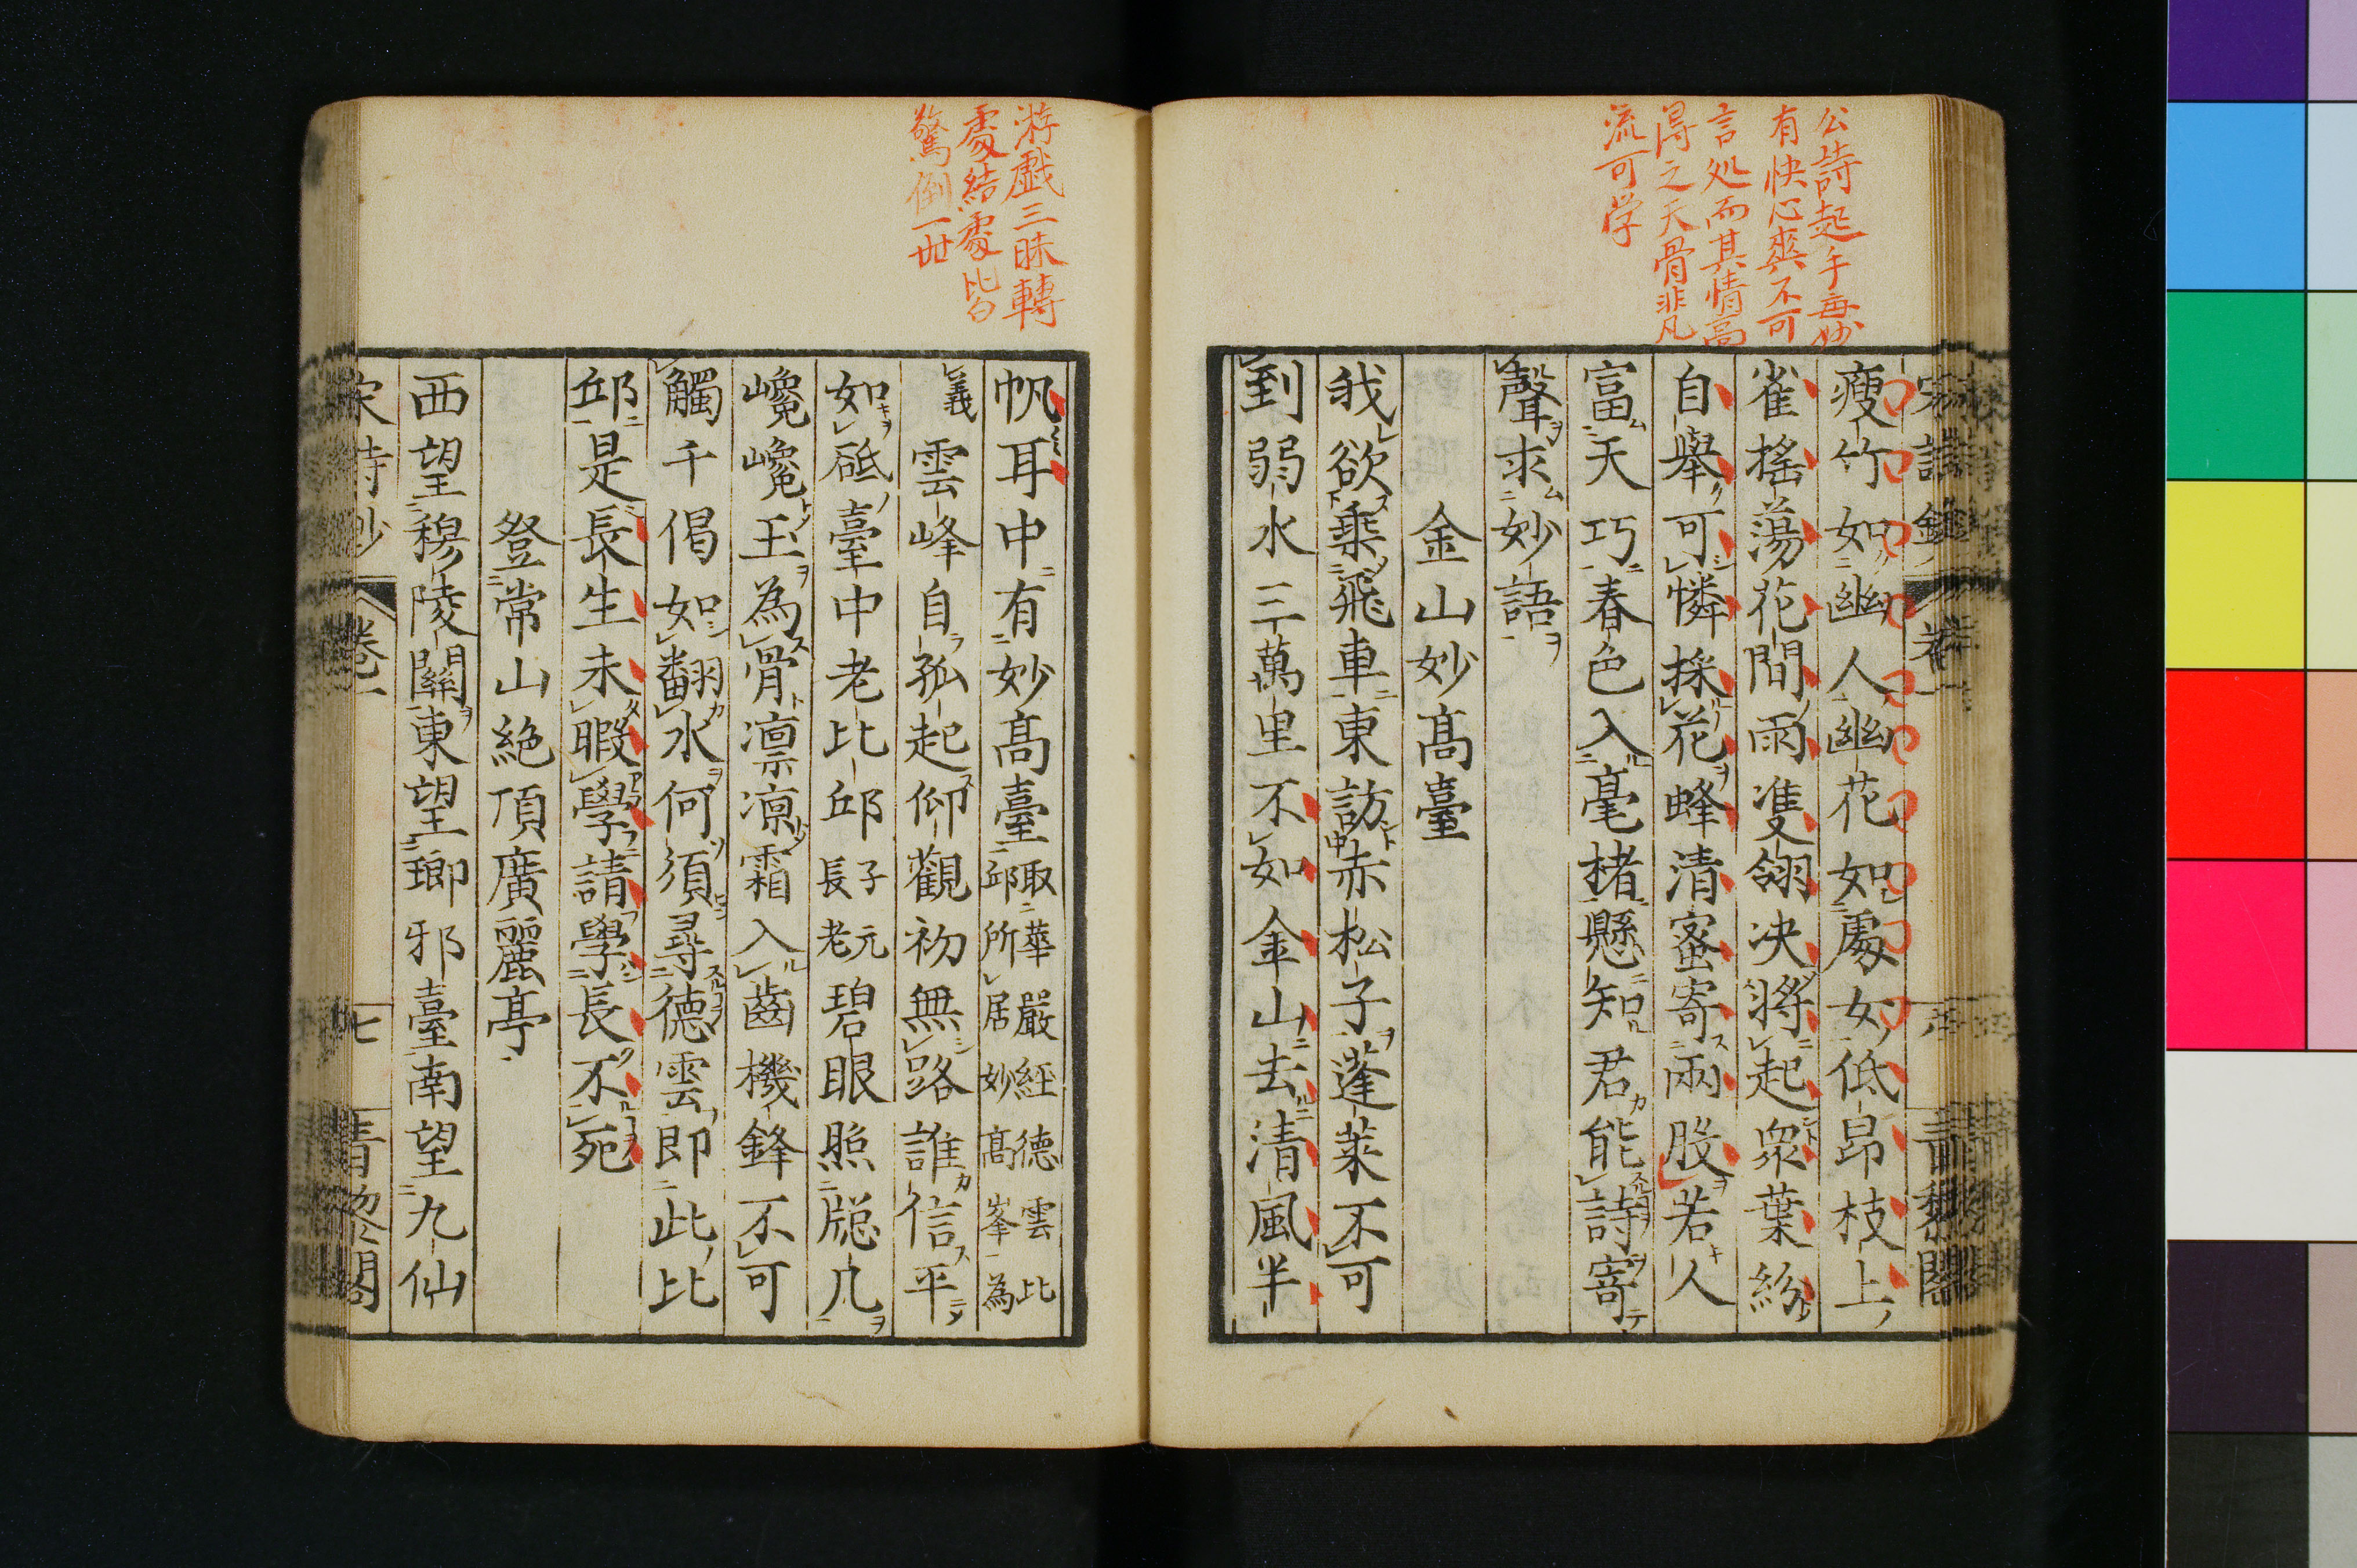 公詩起手每妙
有快心爽不可
言処而其情高
得之天骨非凡
流可学
瘦竹如幽人幽花如處女低昂枝上
雀搖蕩花間雨隻翎决將起衆葉紛
自舉可憐採花蜂清蜜寄兩股若人
富天巧春色入毫楮懸知君能詩寄
聲求妙語
金山妙高臺
我欲乘飛車東訪赤松子蓬萊不可
到弱水三萬里不如金山去清風半
游戯三昧轉
處結處皆
驚倒一世
帆耳中有妙高臺取華嚴經德雲比
邱所居妙高峯為
義雲峰自孤起仰觀初無路誰信平
如砥臺中老比邱子元
長老碧眼照牎几
巉巉玉為骨凛凛霜入齒機鋒不可
觸千偈如翻水何須尋德雲即此比
邱是長生未暇學請學長不死
登常山絶頂廣麗亭
西望穆陵關東望瑯邪臺南望九仙
宋詩鈔 卷一 七 青黎閣